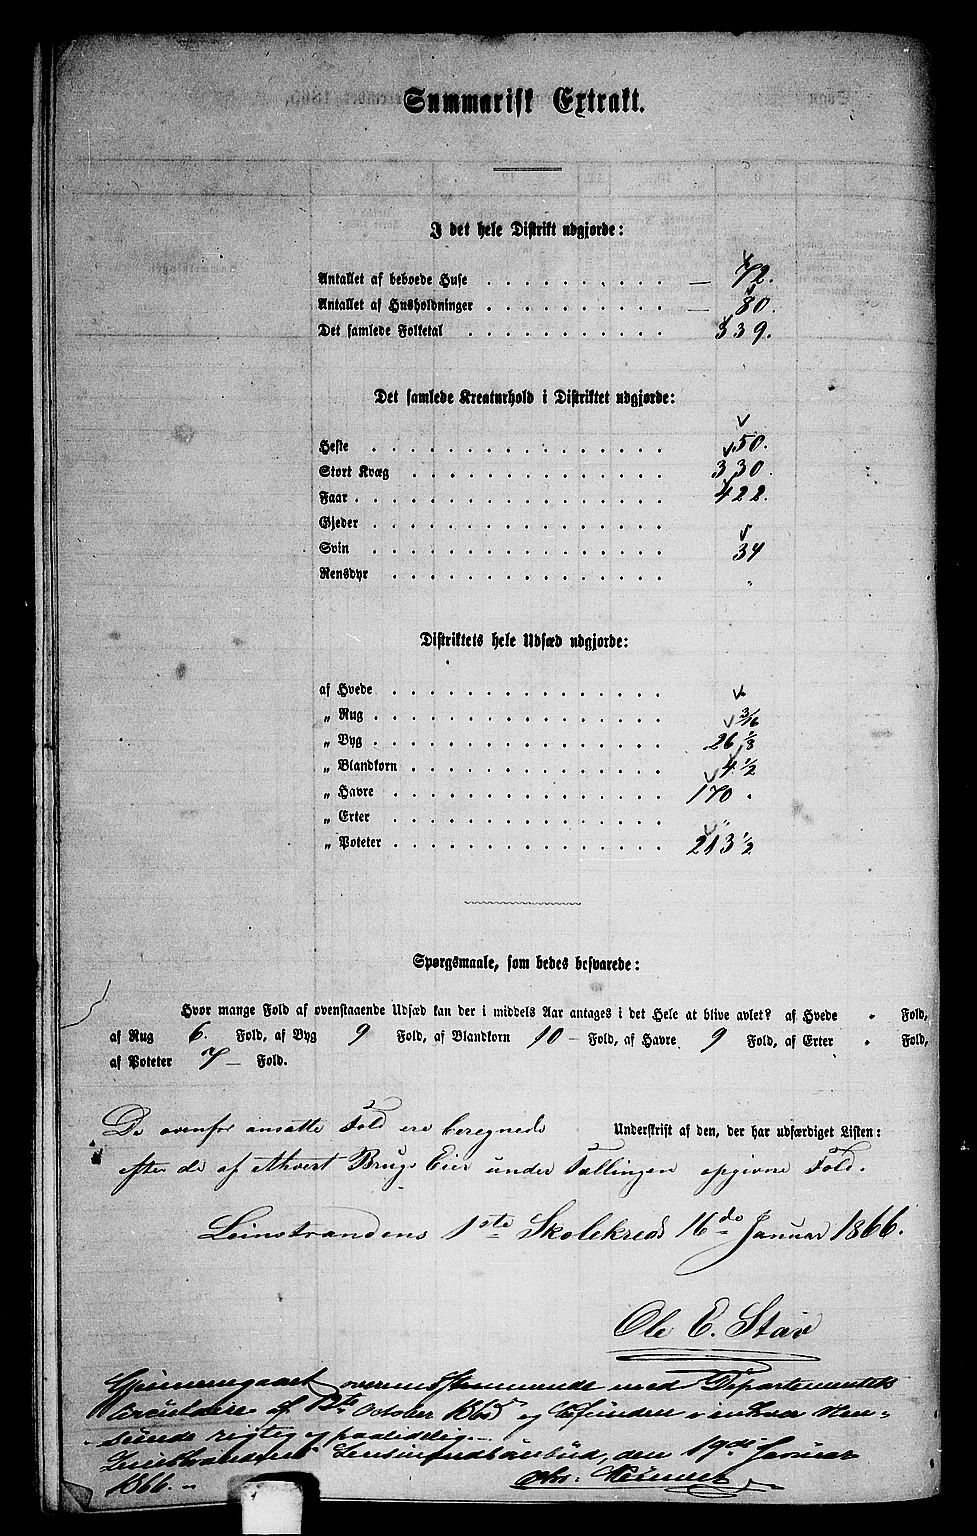 Summarisk Extrakt.
I det hele Distrikt udgjorde:
Antallet af beboede Huse . . . . . . . . . . — 72.
Antallet af Husholdninger . . . . . . . . . . — 80.
Det samlede Folketal . . . . . . . . . . . 339.
Det samlede Kreaturhold i Distriktet udgjorde:
Heste . . . . . . . . . . . . . . . . 50.
Stort Kvæg . . . . . . . . . . . . . . 330
Faar . . . . . . . . . . . . . . . . . 422.
Gjeder . . . . . . . . . . . . . . . .
Svin . . . . . . . . . . . . . . . . 34
Rensdyr . . . . . . . . . . . . . . . "
Distriktets hele Udsæd udgjorde:
af Hvede . . . . . . . . . . . . . . .
„ Rug . . . . . . . . . . . . . . . . 3/16
„ Byg . . . . . . . . . . . . . . . . 26 1/8
„ Blandkorn . . . . . . . . . . . . . . 4 1/2
„ Havre . . . . . . . . . . . . . . . 170 "
„ Erter . . . . . . . . . . . . . . . "
„ Poteter . . . . . . . . . . . . . . . 213 1/2
Spørgsmaale, som bedes besvarede:
Hvor mange Fold af ovenstaaende Udsæd kan der i middels Aar antages i det Hele at blive avlet? af Hvede " Fold,
af Rug 6. Fold, af Byg 9 Fold, af Blandkorn 10 — Fold, af Havre 9 Fold, af Erter " Fold,
af Poteter 7 — Fold.
De ovenfor ansatte Fold ere beregnede
Underskrift af den, der har udfærdiget Listen:
efter de af Ethvert Brugs Eier under Tællingen opgivne Fold.
Leinstrandens 1ste Skolekreds 16de Januar 1866.
Ole E. Stav
Gjennemgaaet overensstemmende med Departementets
Circulaire af 12te October 1865 og befunden i enhver Hen-
seende rigtig og paalidelig.
Leinstrandens Lensmandsbestilling, den 19de Januar
1866.